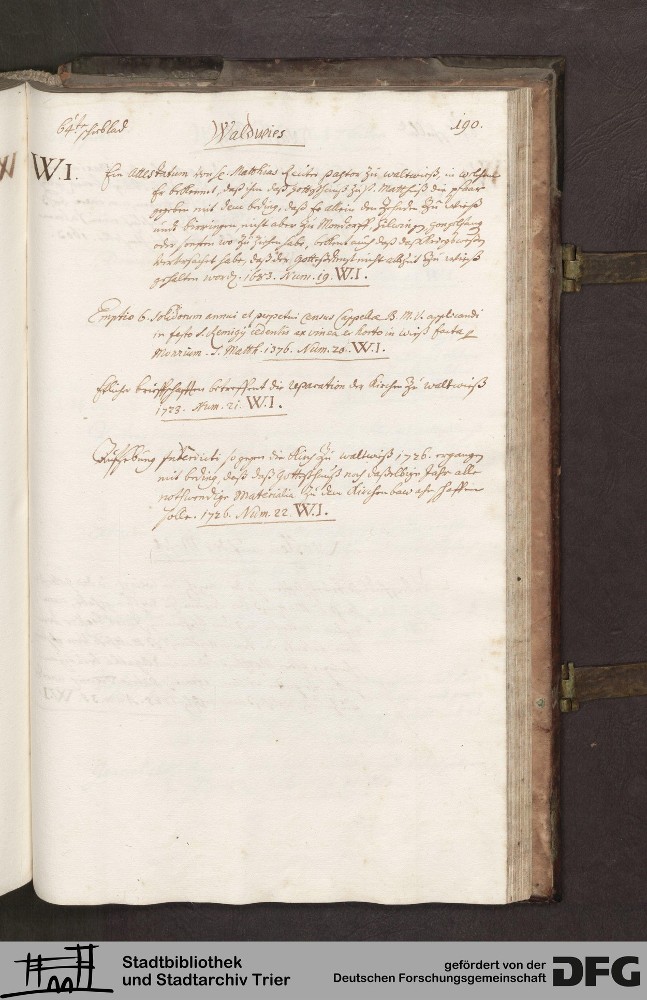 64te schieblad Waldwies 190.
W.I. Ein Attestatum von H. Matthias Reuter pastor zu waltwieß, in welchem
Er bekennet, daß ihn daß Gottgshauß zu S. Matthieß die pfaar
gegeben mit dem beding, daß Er allein den Zehnden zu Wieß
undt bierringen, nicht aber zu Mondorff, Silwingen,
oder sonsten wo zu ziehen habe, bekent auch daß daß
verursachet habe, daß der Gottesdienst nicht allzeit zu wieß
gehalten worden. 1683. Num. 19. W.I.
Emptio 6. Solidorum annui et perpetui census Cappellæ B. M. V. applicandi
in festo S. Remigij cedentis ex vinea et horto in wieß facta p
Monrium S. Matth. 1376. Num. 20. W.I.
Etliche brieffschafften betreffent die reparation der Kirchen zu waltwieß
1723. Num. 21. W.I.
Auffhebung Interdicti so gegen die Kirch zu waltwieß 1726. ergangen
mit beding, daß daß Gotteshauß noch daßelbige Jahr alle
nothwendige Materialia zu dem Kirchenbaw ahnschaffen
solle. 1726. Num. 22 W.I.
Stadtbibliothek
und Stadtarchiv Trier
gefördert von der
Deutschen Forschungsgemeinschaft
DFG